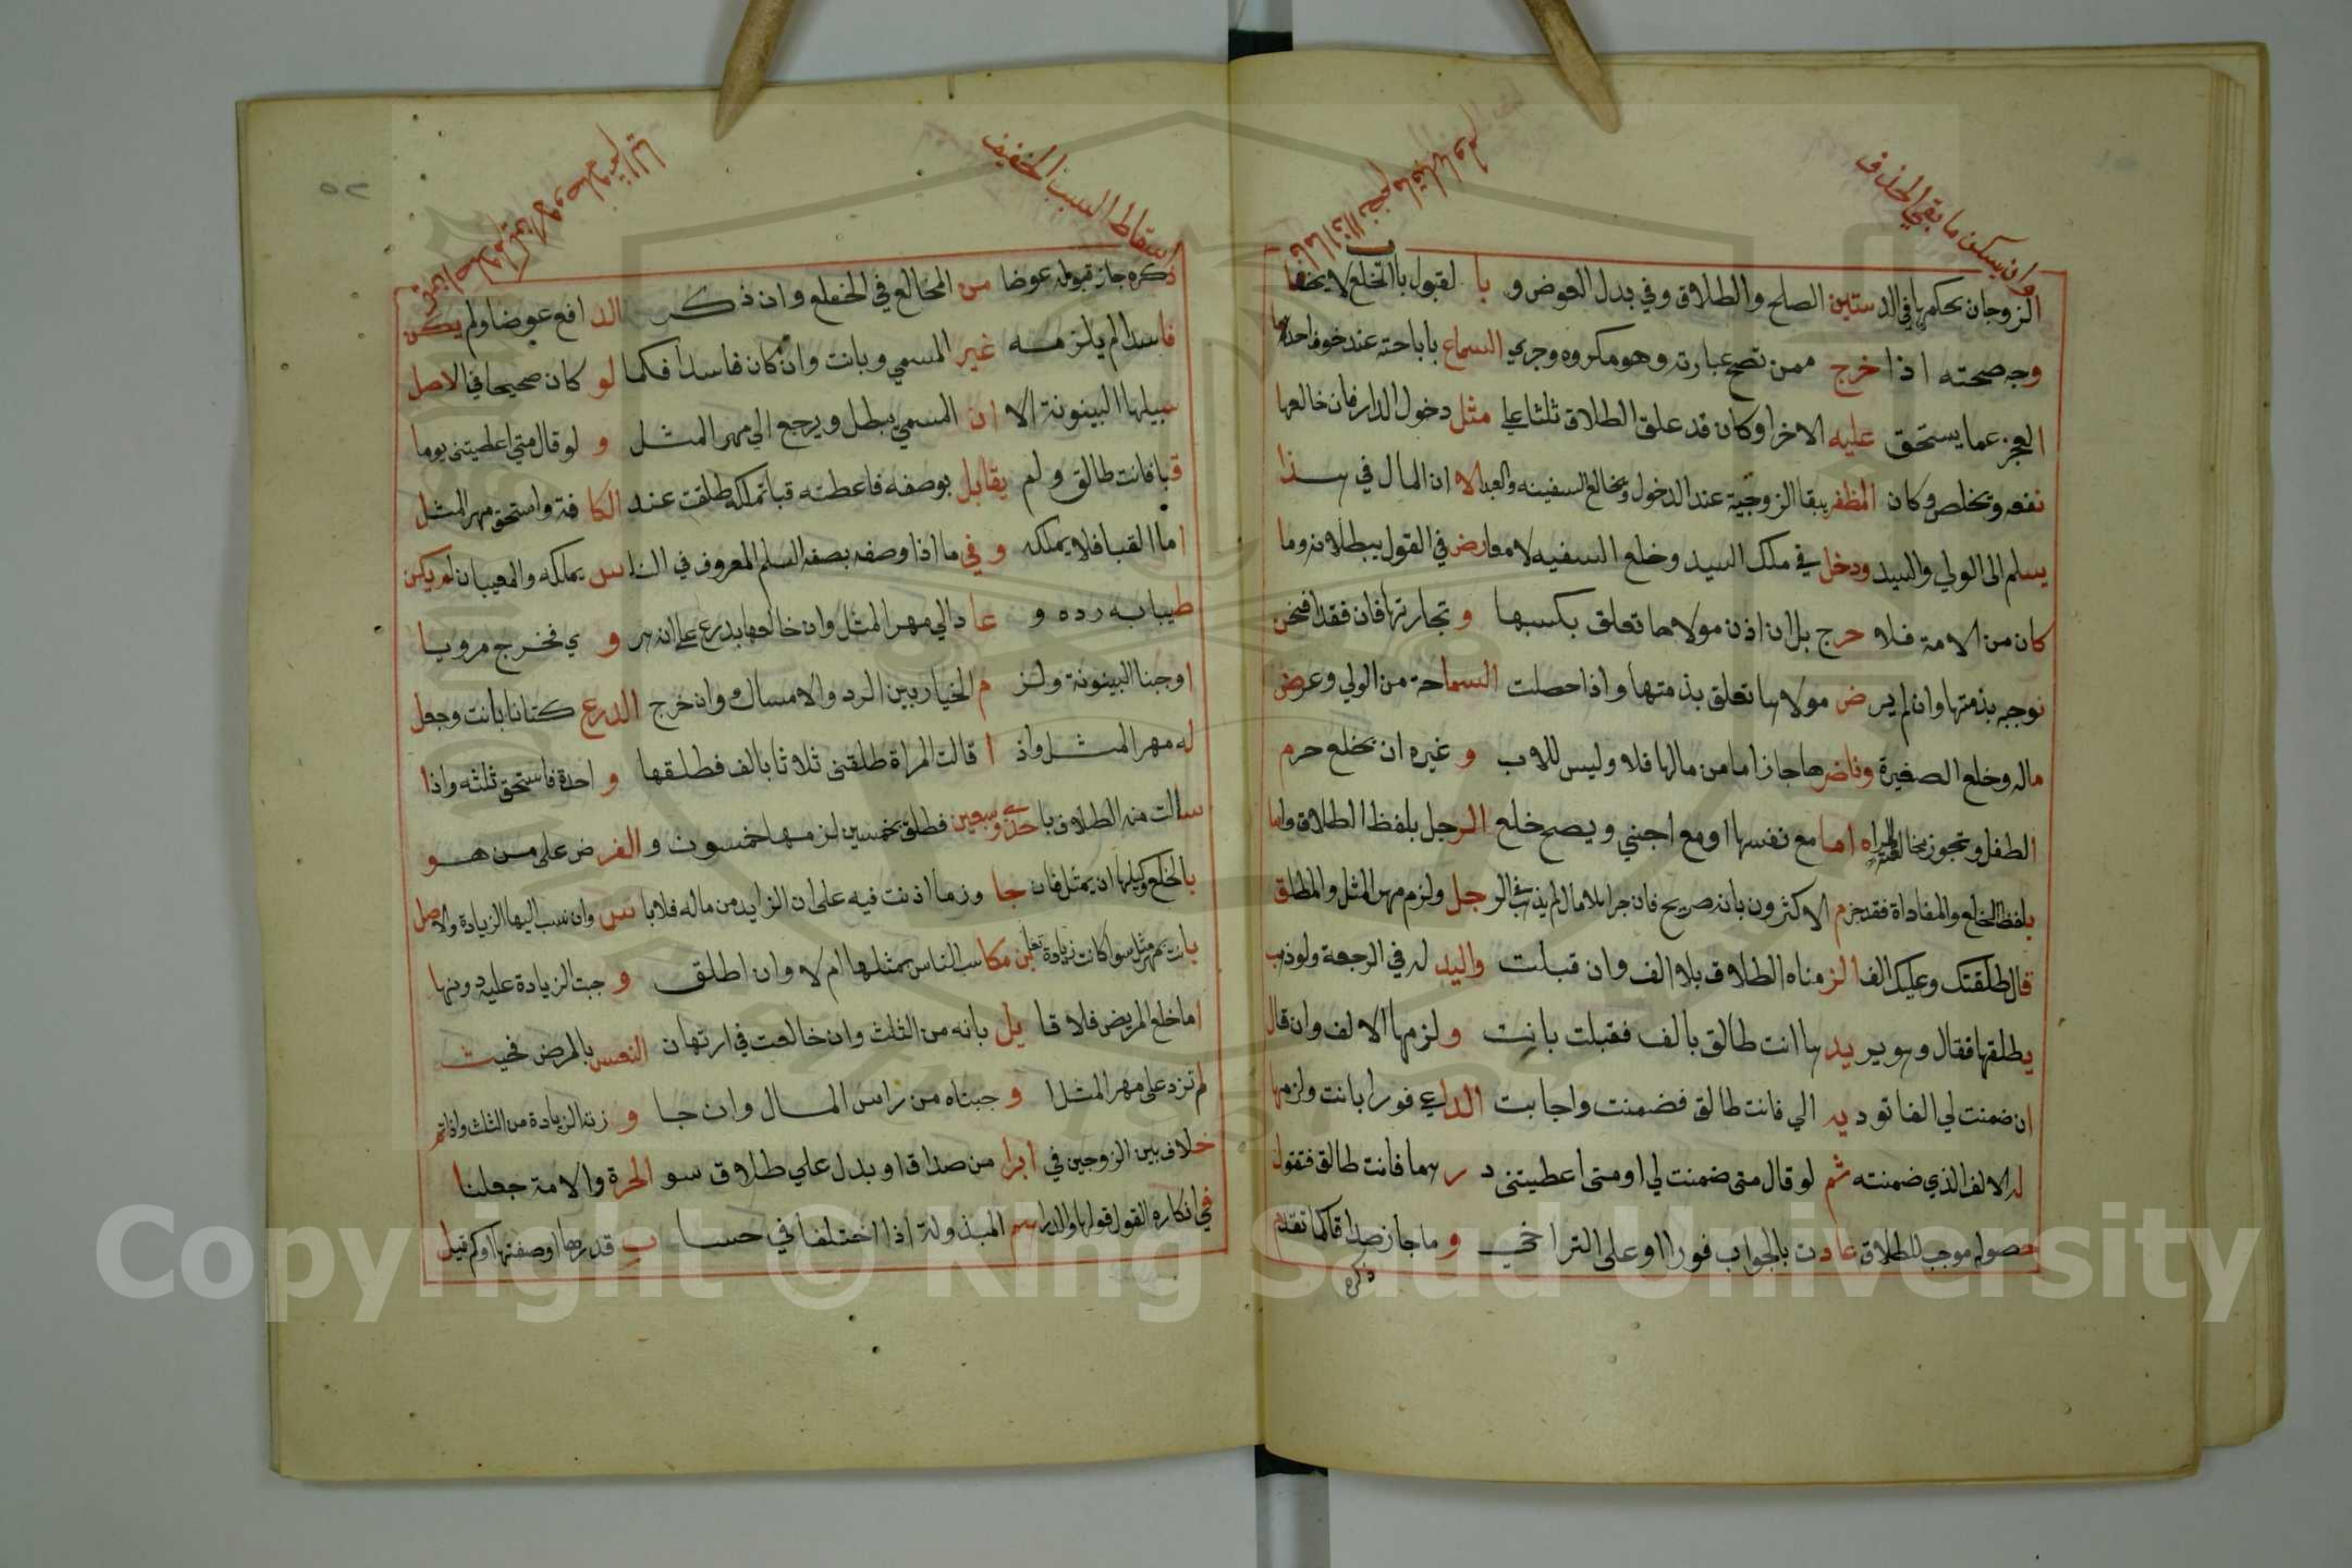 وان يسكن ما بقي الحذف
الزوجان بحكمها في الدستين الصلح والطلاق وفي بدل العوض و با لقبول باب الخلع لا يخفا
وجه صحته اذا خرج ممن تصح عبارته وهو مكروه وجري السماع باباحته عند خوف احدهما
العجز عما يستحق عليه الاخر او كان قد علق الطلاق ثلثا علي مثل دخول الدار فان خالعها
نفعه وتخلص وكان المظفر ببقا الزوجية عند الدخول ويخالع السفيه والعبد الا ان المال في هذا
يسلم الى الولي والسيد ودخل في ملك السيد وخلع السفيه لا معارض في القول ببطلانه وما
كان من الامة فلا حرج بل ان اذن مولاها تعلق بكسبها و تجارتها فان فقدا فنحن
نوجبه بذمتها وان لم يرض مولاها تعلق بذمتها واذا حصلت السماحة من الولي وعرض
ماله وخلع الصغيرة وناضرها جاز اما من مالها فلا وليس للاب و غيره ان يخلع حرم
الطفل وتجوز مخالعة المراه اما مع نفسها او مع اجنبي ويصح خلع الرجل بلفظ الطلاق واما
بلفظ الخلع والمفاداة فقد جزم الاكثرون بانه صريح فان جرا بلا مال لم يذهب الرجل ولزم مهر المثل والمطلق
قال طلقتك وعليك الفا الزمناه الطلاق بلا الف وان قبلت واليد له في الرجعة ولو ذهب
يطلقها فقال وهو يريد ها انت طالق بالف فقبلت بانت و لزمها الالف وان قال
ان ضمنت لي الفا توديه الي فانت طالق فضمنت واجابت الداعي فورا بانت ولزمها
له الالف الذي ضمنته ثم لو قال متى ضمنت لي او متى اعطيتني د ر هما فانت طالق فتقول
حصوله موجب للطلاق عادت بالجواب فورا او على التراخي و ما جاز صداقا كما تقدم
ذكره
اسقاط السبب الخفيف
ذكره جاز قبوله عوضا من المخالع في الخلع وان ذكر الد افع عوضا ولم يكن
فاسدا لم يلزمه غير المسمي وبانت وان كان فاسدا فكما لو كان صحيحا في الاصل
سبيلها البينونة الا ان المسمي يبطل ويرجع الي مهر المثل و لو قال متي اعطيتني يوما
قبا فانت طالق ولم يقابل بوصفه فاعطته قبا تملكه طلقت عند الكا فة واستحق مهر المثل
اما القبا فلا يملكه و في ما اذا وصفه بصفة السلم المعروف في الناس يملكه والمعيب ان لم يكن
طيبا به رده و عا د الي مهر المثل وان خالعها بدرع علي انه هر و ي فخرج مرويا
اوجبنا البينونة ولز م الخيار بين الرد والامساك وان خرج الدرع كتانا بانت وجعل
له مهر المثل واذ ا قالت المراة طلقني ثلاثا بالف فطلقها و احدة فاستحق ثلثه واذا
سالت منه الطلاق باحدى وسبعين فطلق بخمسين لزمها خمسون و الفر ض على من هو
بالخلع وكيلها ان يمتثل فان جا وز ما اذنت فيه على ان الزايد من ماله فلا با س وان نسب اليها الزيادة والاصل
بانت بمهر مثل سوا كانت زيادة تغابن مكاسب الناس بمثلها ام لا وان اطلق و جبت الزيادة عليه دونها
اما خلع المريض فلا قا يل بانه من الثلث وان خالعت في ارتهان النفس بالمرض فحيث
لم تزد على مهر المثل و جبناه من راس المال وان جا و زته الزيادة من الثلث واذا تم
خلاف بين الزوجين في ابرا من صداق او بدل علي طلاق سو الحرة والامة جعلنا
في انكاره القول قولها والدراهم المبذولة اذا اختلفا في حسا ب قدرها او صفتها او كم قيل
Copyright © King Saud University